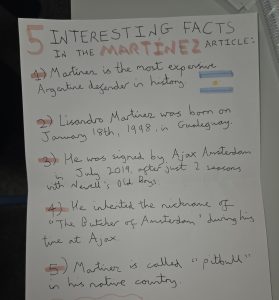 5 INTERESTING FACTS
IN THE MARTÍNEZ ARTICLE:
1) Martínez is the most expensive
Argentine defender in history.
2) Lisandro Martínez was born on
January 18th, 1998, in Gualeguay.
3) He was signed by Ajax Amsterdam
in July 2019, after just 2 seasons
with Newell's Old Boys.
4) He inherited the nickname of
"The Butcher of Amsterdam" during his
time at Ajax.
5) Martínez is called "pitbull" in
his native country.